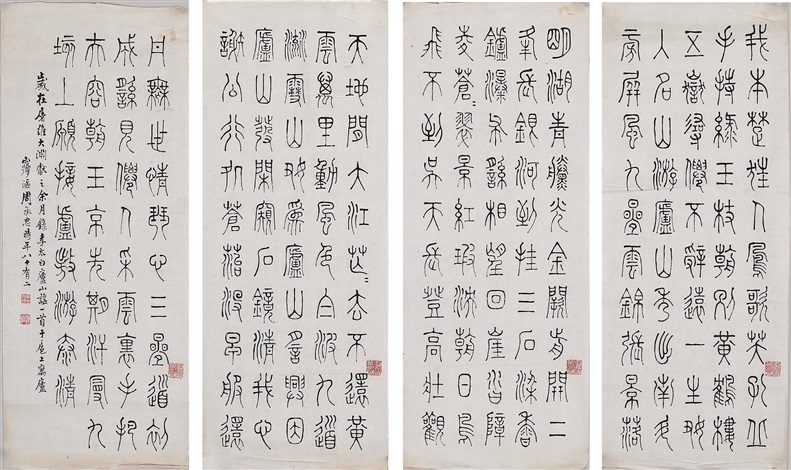 我本楚狂人鳳歌笑孔丘
手持綠玉杖朝別黃鶴樓
五嶽尋僊不辭遠一生好
入名山游廬山秀出南斗
旁屏風九疊雲錦張景落
明湖青黛光金闕前開二
峯長銀河倒挂三石梁香
鑪瀑布遙相望回崖沓障
夌蒼〻翠景紅瑕泱朝日鳥
飛不到吳天長登高壯觀
天地間大江茫〻去不還黃
雲萬里動風色白波九道
流雪山好為廬山謠興因
廬山發閑窺石鏡清我心
謝公行処蒼苔沒早服還
丹無世情琴心三疊道初
成遙見僊人采雲裏手把
夫容朝玉京先期汗漫九
垓上願接盧敖游泰清
歲在屠維大淵獻之余月錄李太白廬山謠一首于滬上寓廬
周承忠時年八十有二